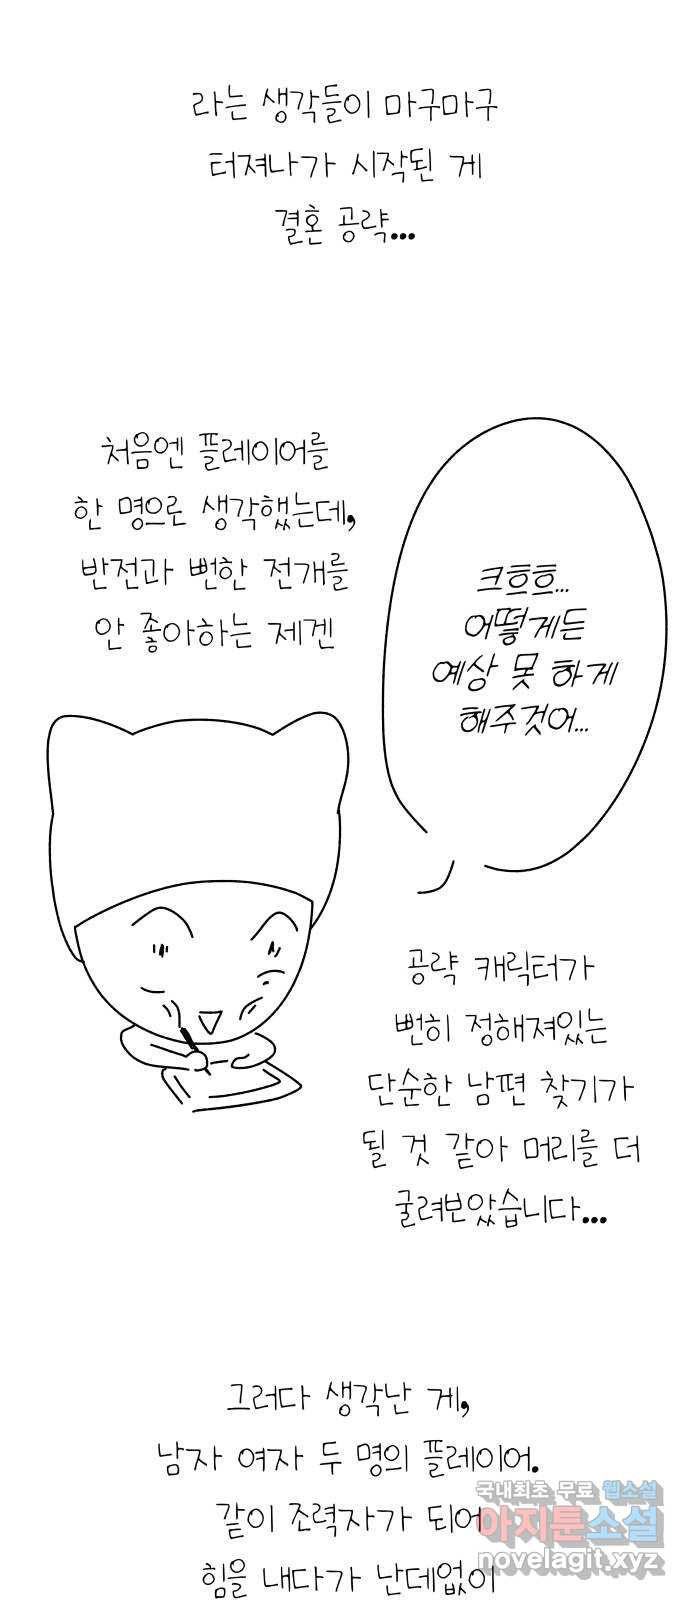 라는 생각들이 마구마구
터져나가 시작된 게
결혼 공략...
처음엔 플레이어를
한 명으로 생각했는데,
반전과 뻔한 전개를
안 좋아하는 제겐
크흐흐...
어떻게든
예상 못 하게
해주겄어...
공략 캐릭터가
뻔히 정해져있는
단순한 남편 찾기가
될 것 같아 머리를 더
굴려보았습니다...
그러다 생각난 게,
남자 여자 두 명의 플레이어.
같이 조력자가 되어
힘을 내다가 난데없이
국내최초 무료 웹소설
아지툰소설
novelagit.xyz